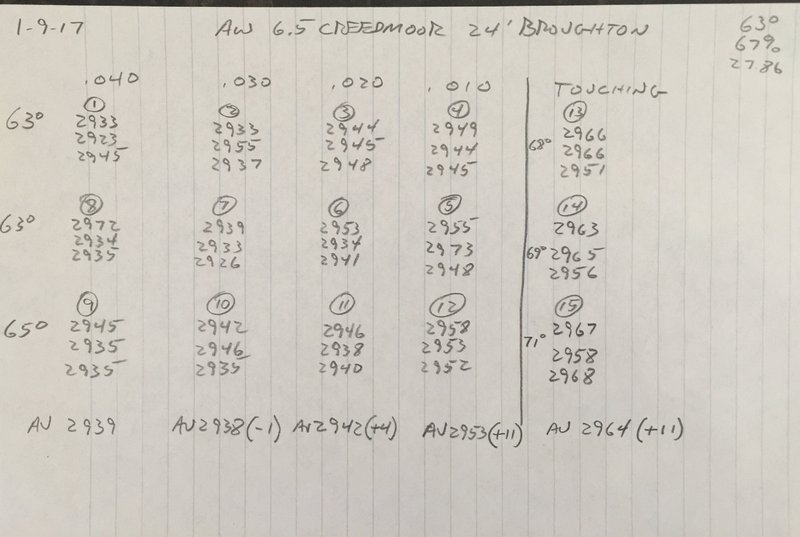 1-9-17 AW 6.5 CREEDMOOR 24' BROUGHTON 63°
67%
27.86
.040 .030 .020 .010 TOUCHING
① ② ③ ④ ⑬
63° 2933 2933 2944 2949 68° 2966
2923 2955 2945 2944 2966
2945 2937 2948 2945 2951
⑧ ⑦ ⑥ ⑤ ⑭
63° 2972 2939 2953 2955 2963
2934 2933 2934 2973 69° 2965
2935 2926 2941 2948 2956
⑨ ⑩ ⑪ ⑫ ⑮
65° 2945 2942 2946 2958 71° 2967
2935 2946 2938 2953 2958
2935 2935 2940 2952 2968
AV 2939 AV 2938(-1) AV 2942(+4) AV 2953(+11) AV 2964(+11)